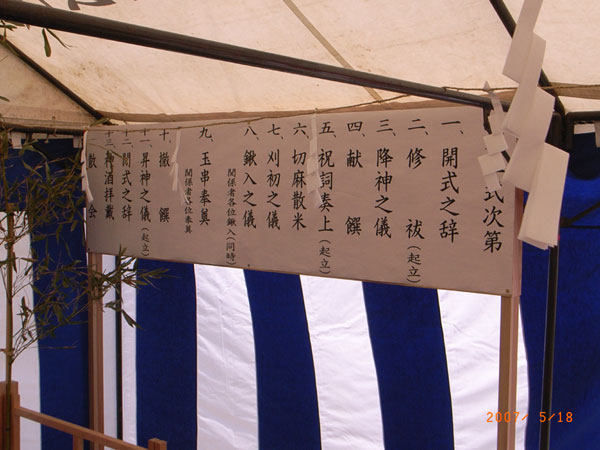 式次第
一、開式之辞
二、修祓(起立)
三、降神之儀
四、献饌
五、祝詞奏上(起立)
六、切麻散米
七、刈初之儀
八、鍬入之儀
関係者各位鍬入(同時)
九、玉串奉奠
関係者各位奉奠
十、撤饌
十一、昇神之儀(起立)
十二、閉式之辞
十三、神酒拝戴
散会
2007/ 5/18